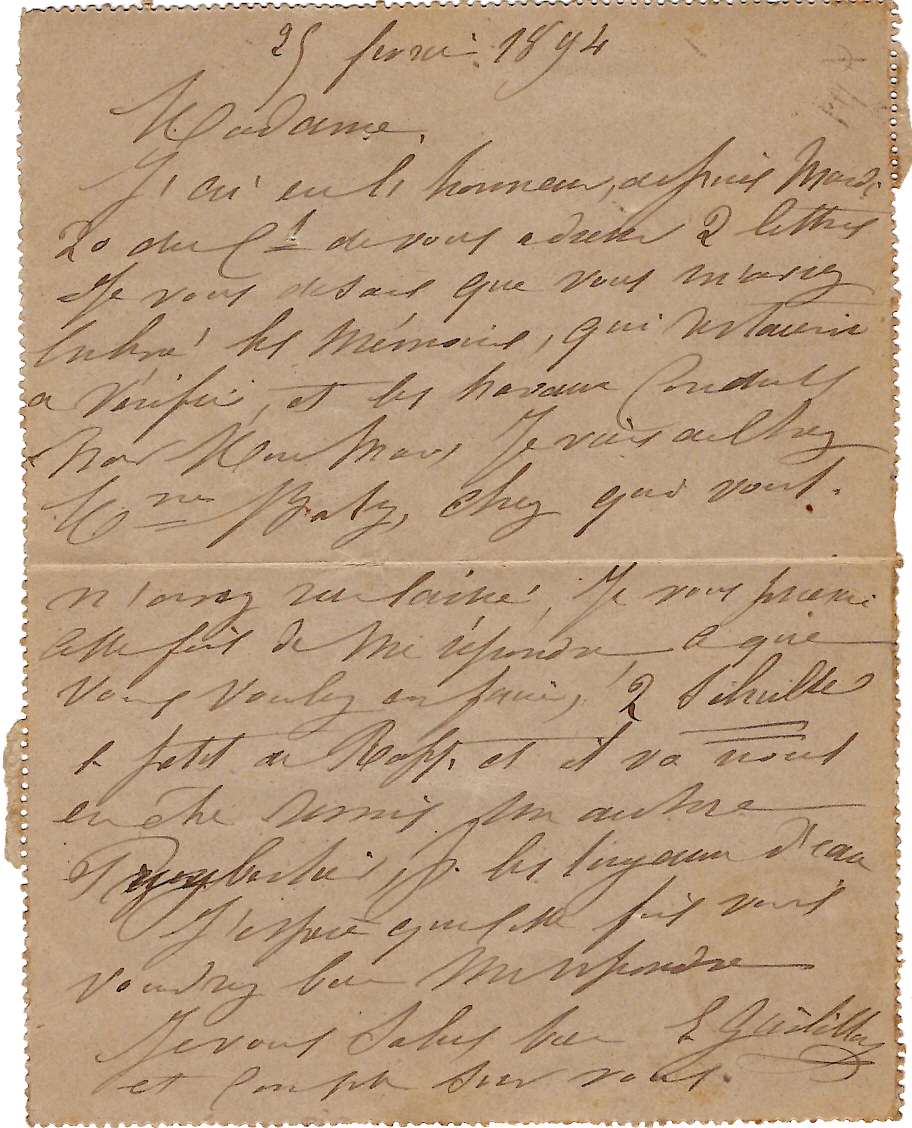 25 février 1894
Madame,
J'ai eu l' honneur, depuis Mardi
20 du Ct de vous adresser 2 lettres
Je vous disais que vous m'aviez
les Mémoires, qui restaient
a vérifier, et les travaux
par Mon Je vais chez
Mme Baty, chez qui vous
n'avez rien laissé, Je vous prierai
cette fois de me répondre, ce que
vous voulez en faire, 2
le petit de Rapp, et il va nous
en être remis un autre
p. les tuyaux d'eau
J'espère que cette fois vous
voudrez bien me répondre
Je vous salue bien
et compte sur vous.